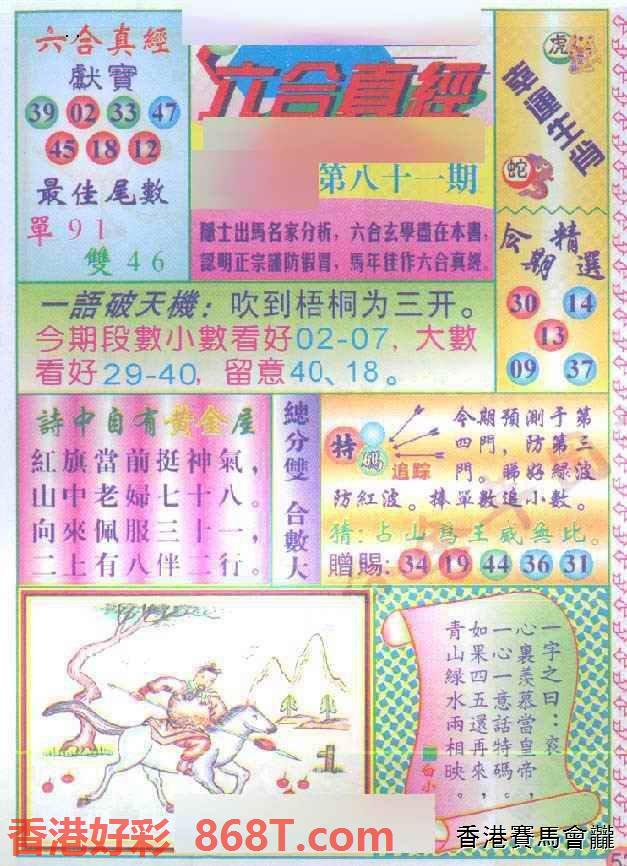 六合真經
獻寶
39 02 33 47
45 18 12
最佳尾數
單91
雙46
六合真經
第八十一期
隱士出馬名家分析，六合玄學盡在本書，
認明正宗謹防假冒，馬年佳作六合真經。
虎
蛇
今期精選
30 14
13
09 37
一語破天機：吹到梧桐为三开。
今期段數小數看好02-07，大數
看好29-40，留意40、18。
詩中自有黃金屋
紅旗當前挺神氣，
山中老婦七十八。
向來佩服三十一，
二上有八伴二行。
總分雙 合數大
特碼
追踪
今期預測于第
四門，防第三
門。睇好綠波
防紅波。捧單數追小數。
猜：占山為王威無比。
贈賜：34 19 44 36 31
一字之曰：衮
心裏羨慕當皇帝，
一心一意話特碼。
如果四五還再來，
青山綠水兩相映。
白小
香港好彩 868T.com
香港賽馬會